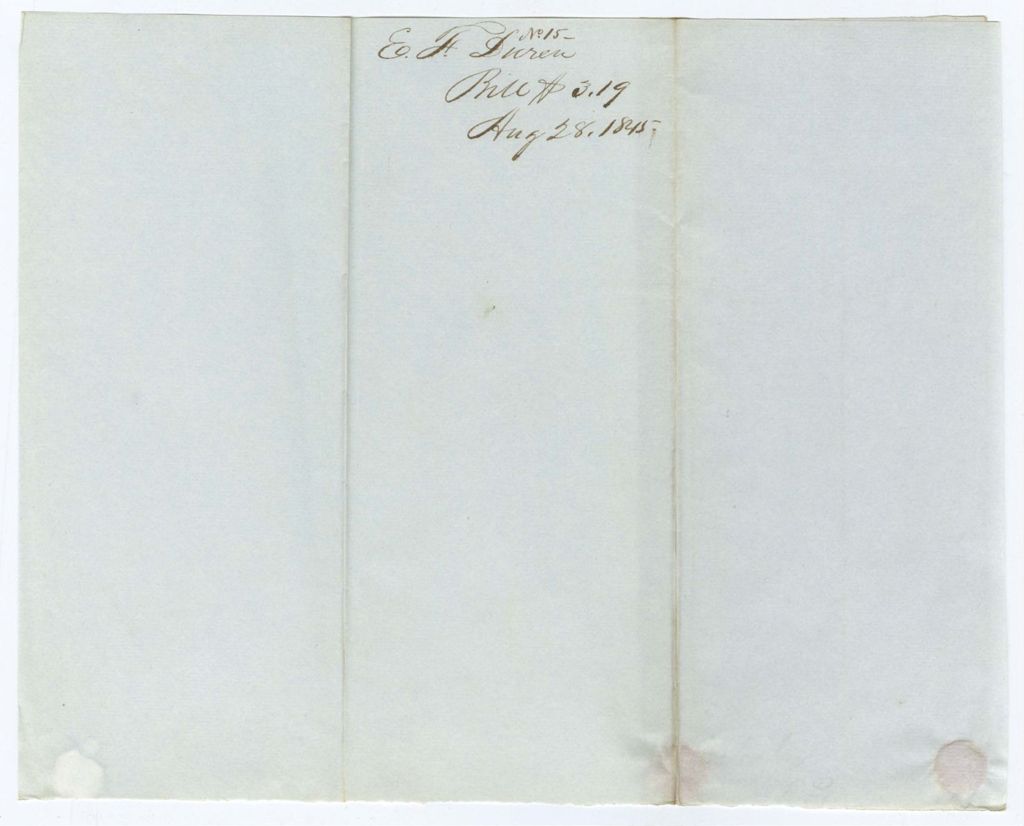 No 15-
E. F. Duren
Bill $ 3.19
Aug 28. 1845-